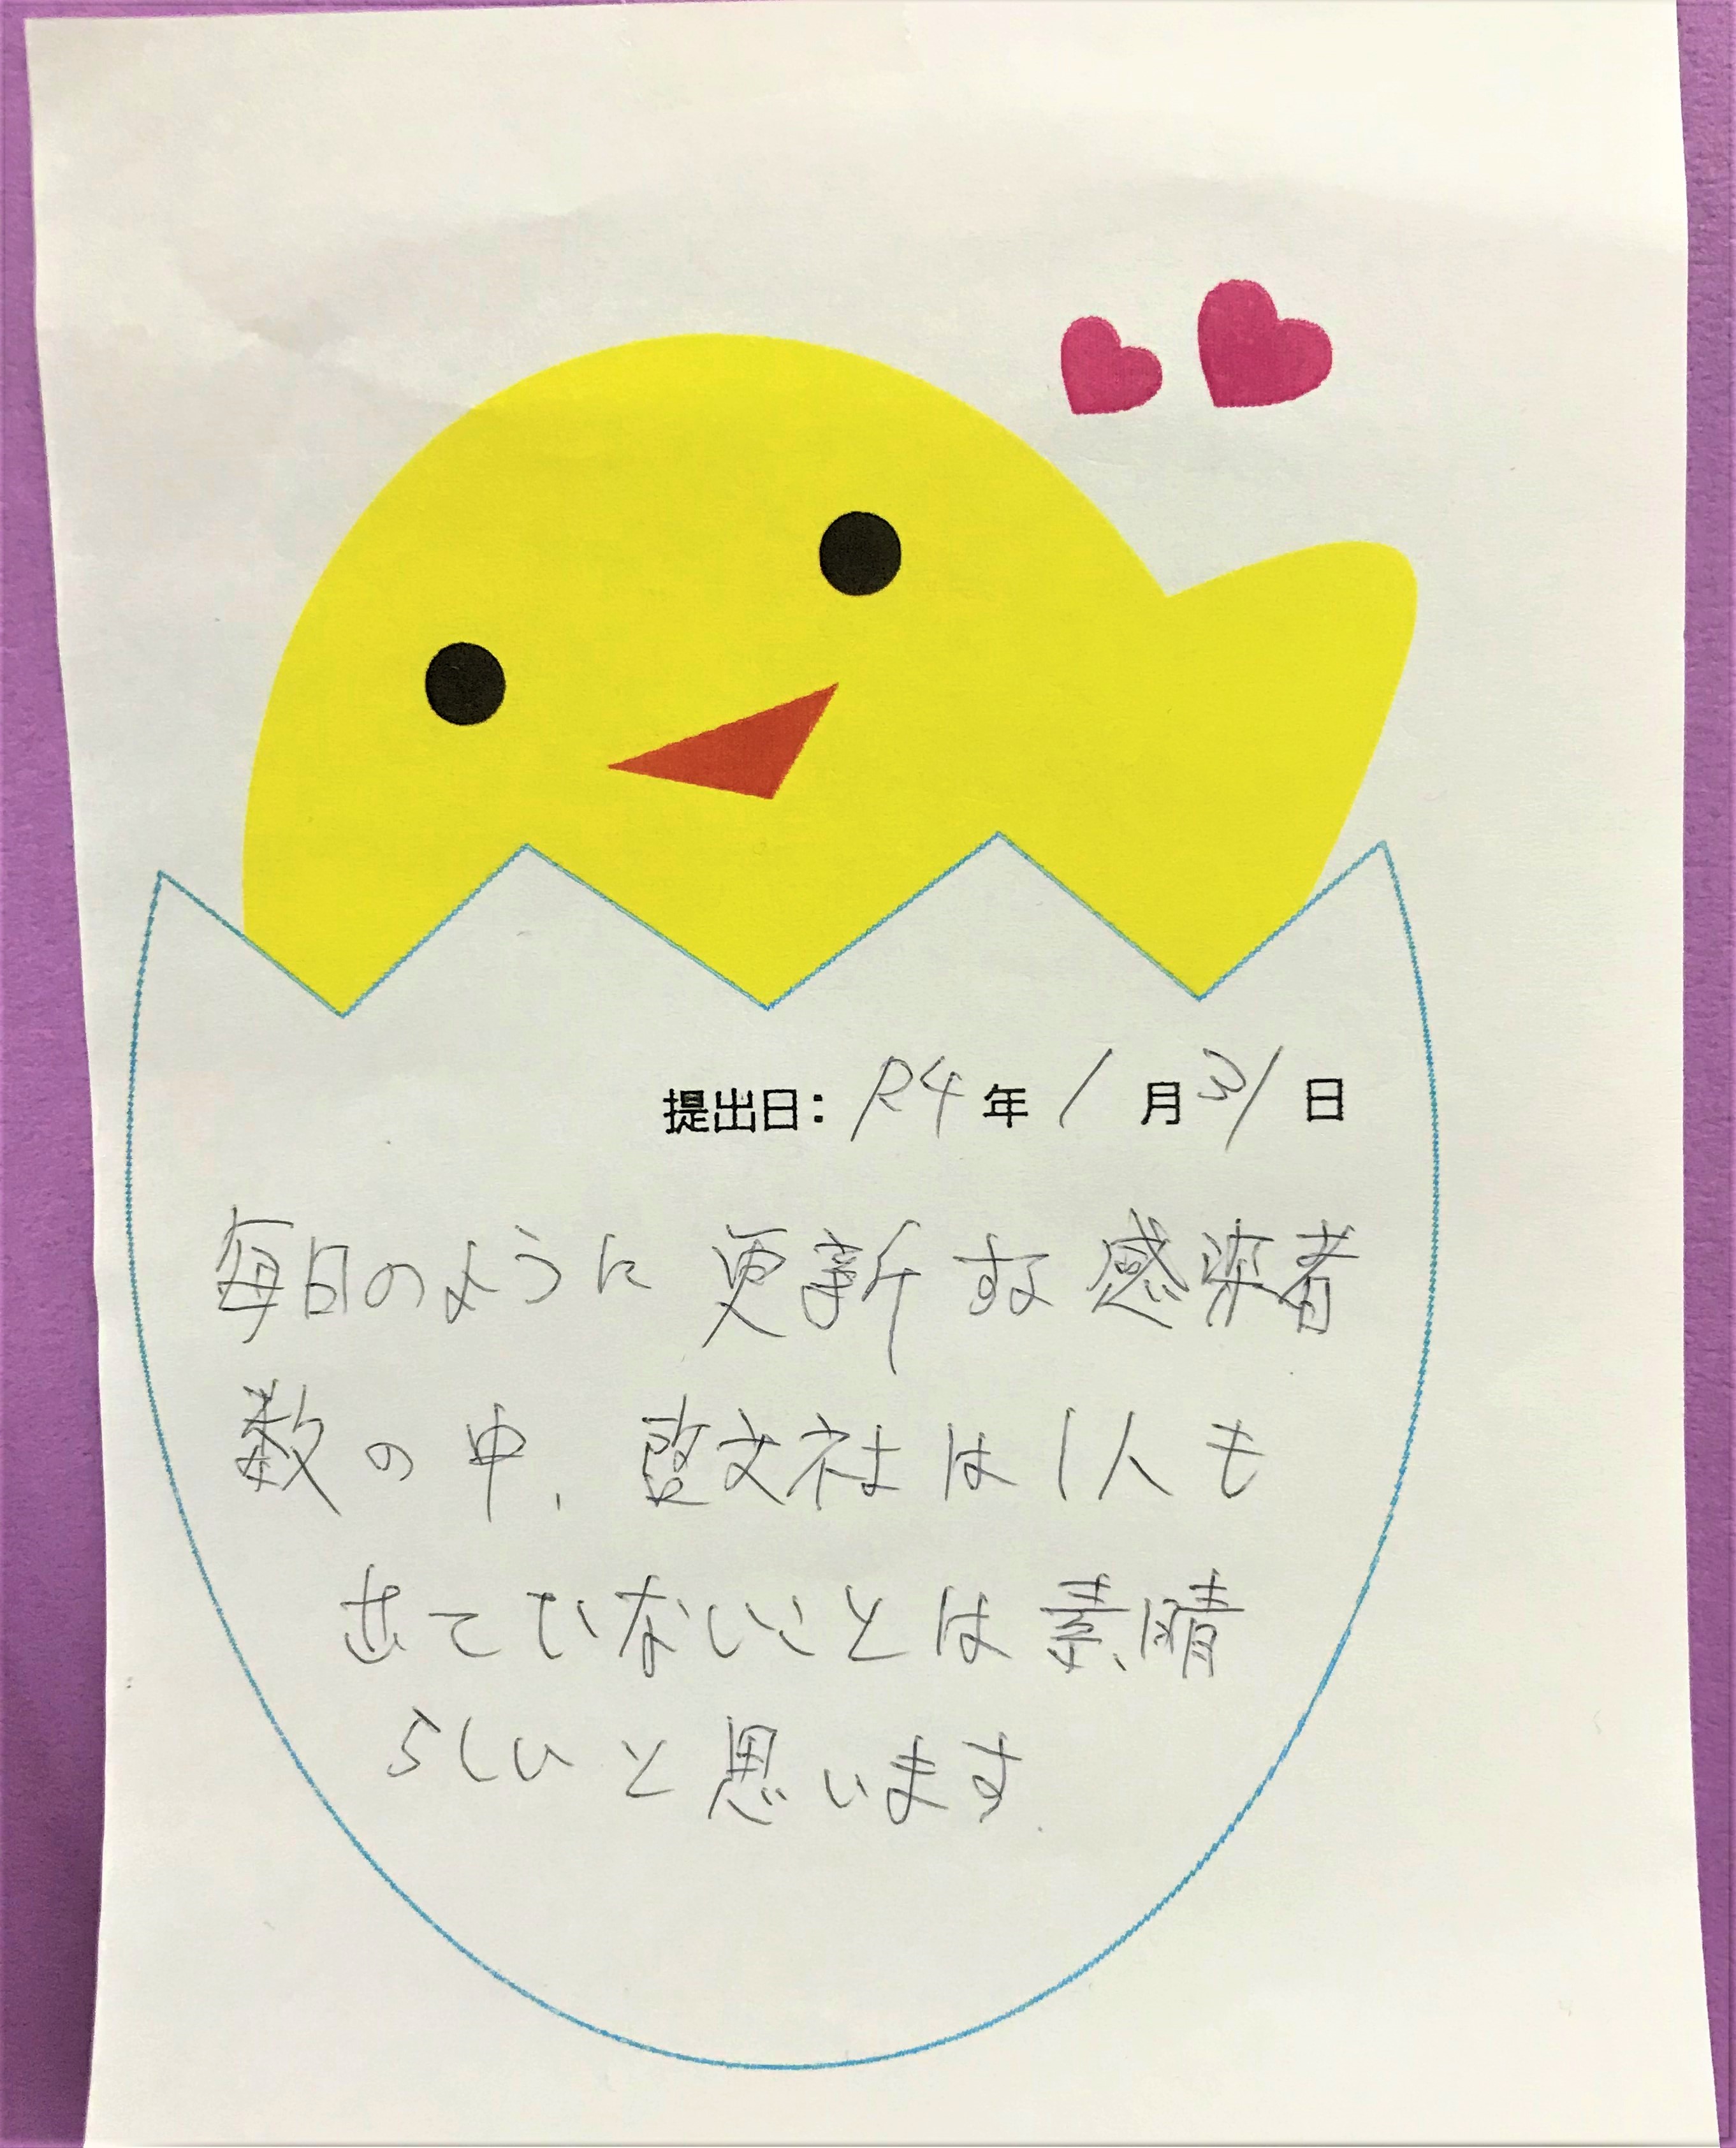 提出日: R4年1月31日
毎日のように更新する感染者
数の中、啓文社は1人も
出ていないことは素晴
らしいと思います。